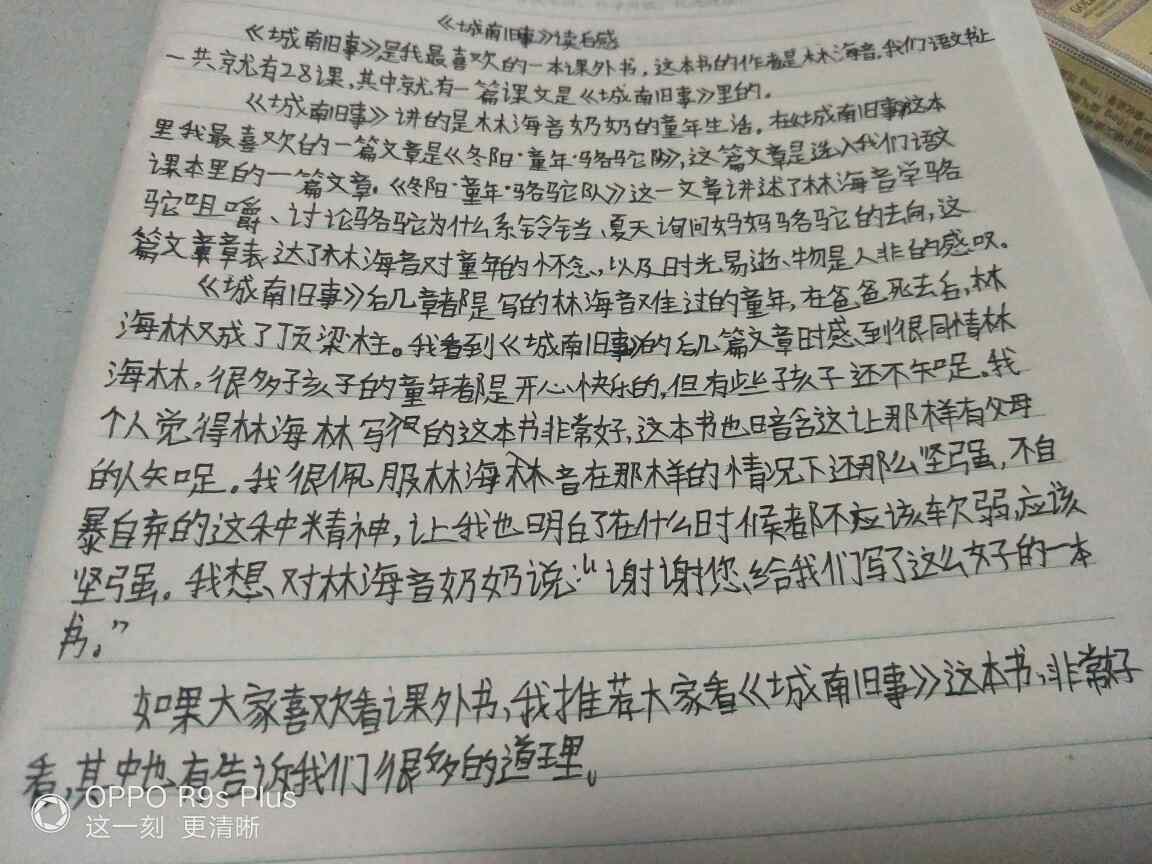 《城南旧事》读后感
《城南旧事》是我最喜欢的一本课外书，这本书的作者是林海音，我们语文书上
一共就有28课，其中就有一篇课文是《城南旧事》里的。
《城南旧事》讲的是林海音奶奶的童年生活。在《城南旧事》这本
里我最喜欢的一篇文章是《冬阳·童年·骆驼队》，这篇文章是选入我们语文
课本里的一篇文章。《冬阳·童年·骆驼队》这一文章讲述了林海音学骆
驼咀嚼、讨论骆驼为什么系铃铛、夏天询问妈妈骆驼的去向，这
篇文章章表达了林海音对童年的怀念、，以及时光易逝、物是人非的感叹。
《城南旧事》后几章都是写的林海音难过的童年，在爸爸死去后，林
海林又成了顶梁柱。我看到《城南旧事》的后几篇文章时感到很同情林
海林。很多子孩子的童年都是开心快乐的，但有些子孩子还不知足。我
个人觉得林海林写很的这本书非常好，这本书也暗含这让那样有父母
的人知足。我很佩服林海林音在那样的情况下还那么坚强，不自
暴自弃的这种精神，让我也明白了在什么时候都不应该软弱，应该
坚强。我想对林海音奶奶说：“谢谢您给我们写了这么好的一本
书。”
如果大家喜欢看课外书，我推荐大家看《城南旧事》这本书，非常好
看，其中也有告诉我们很多的道理。
OPPO R9s Plus
这一刻 更清晰